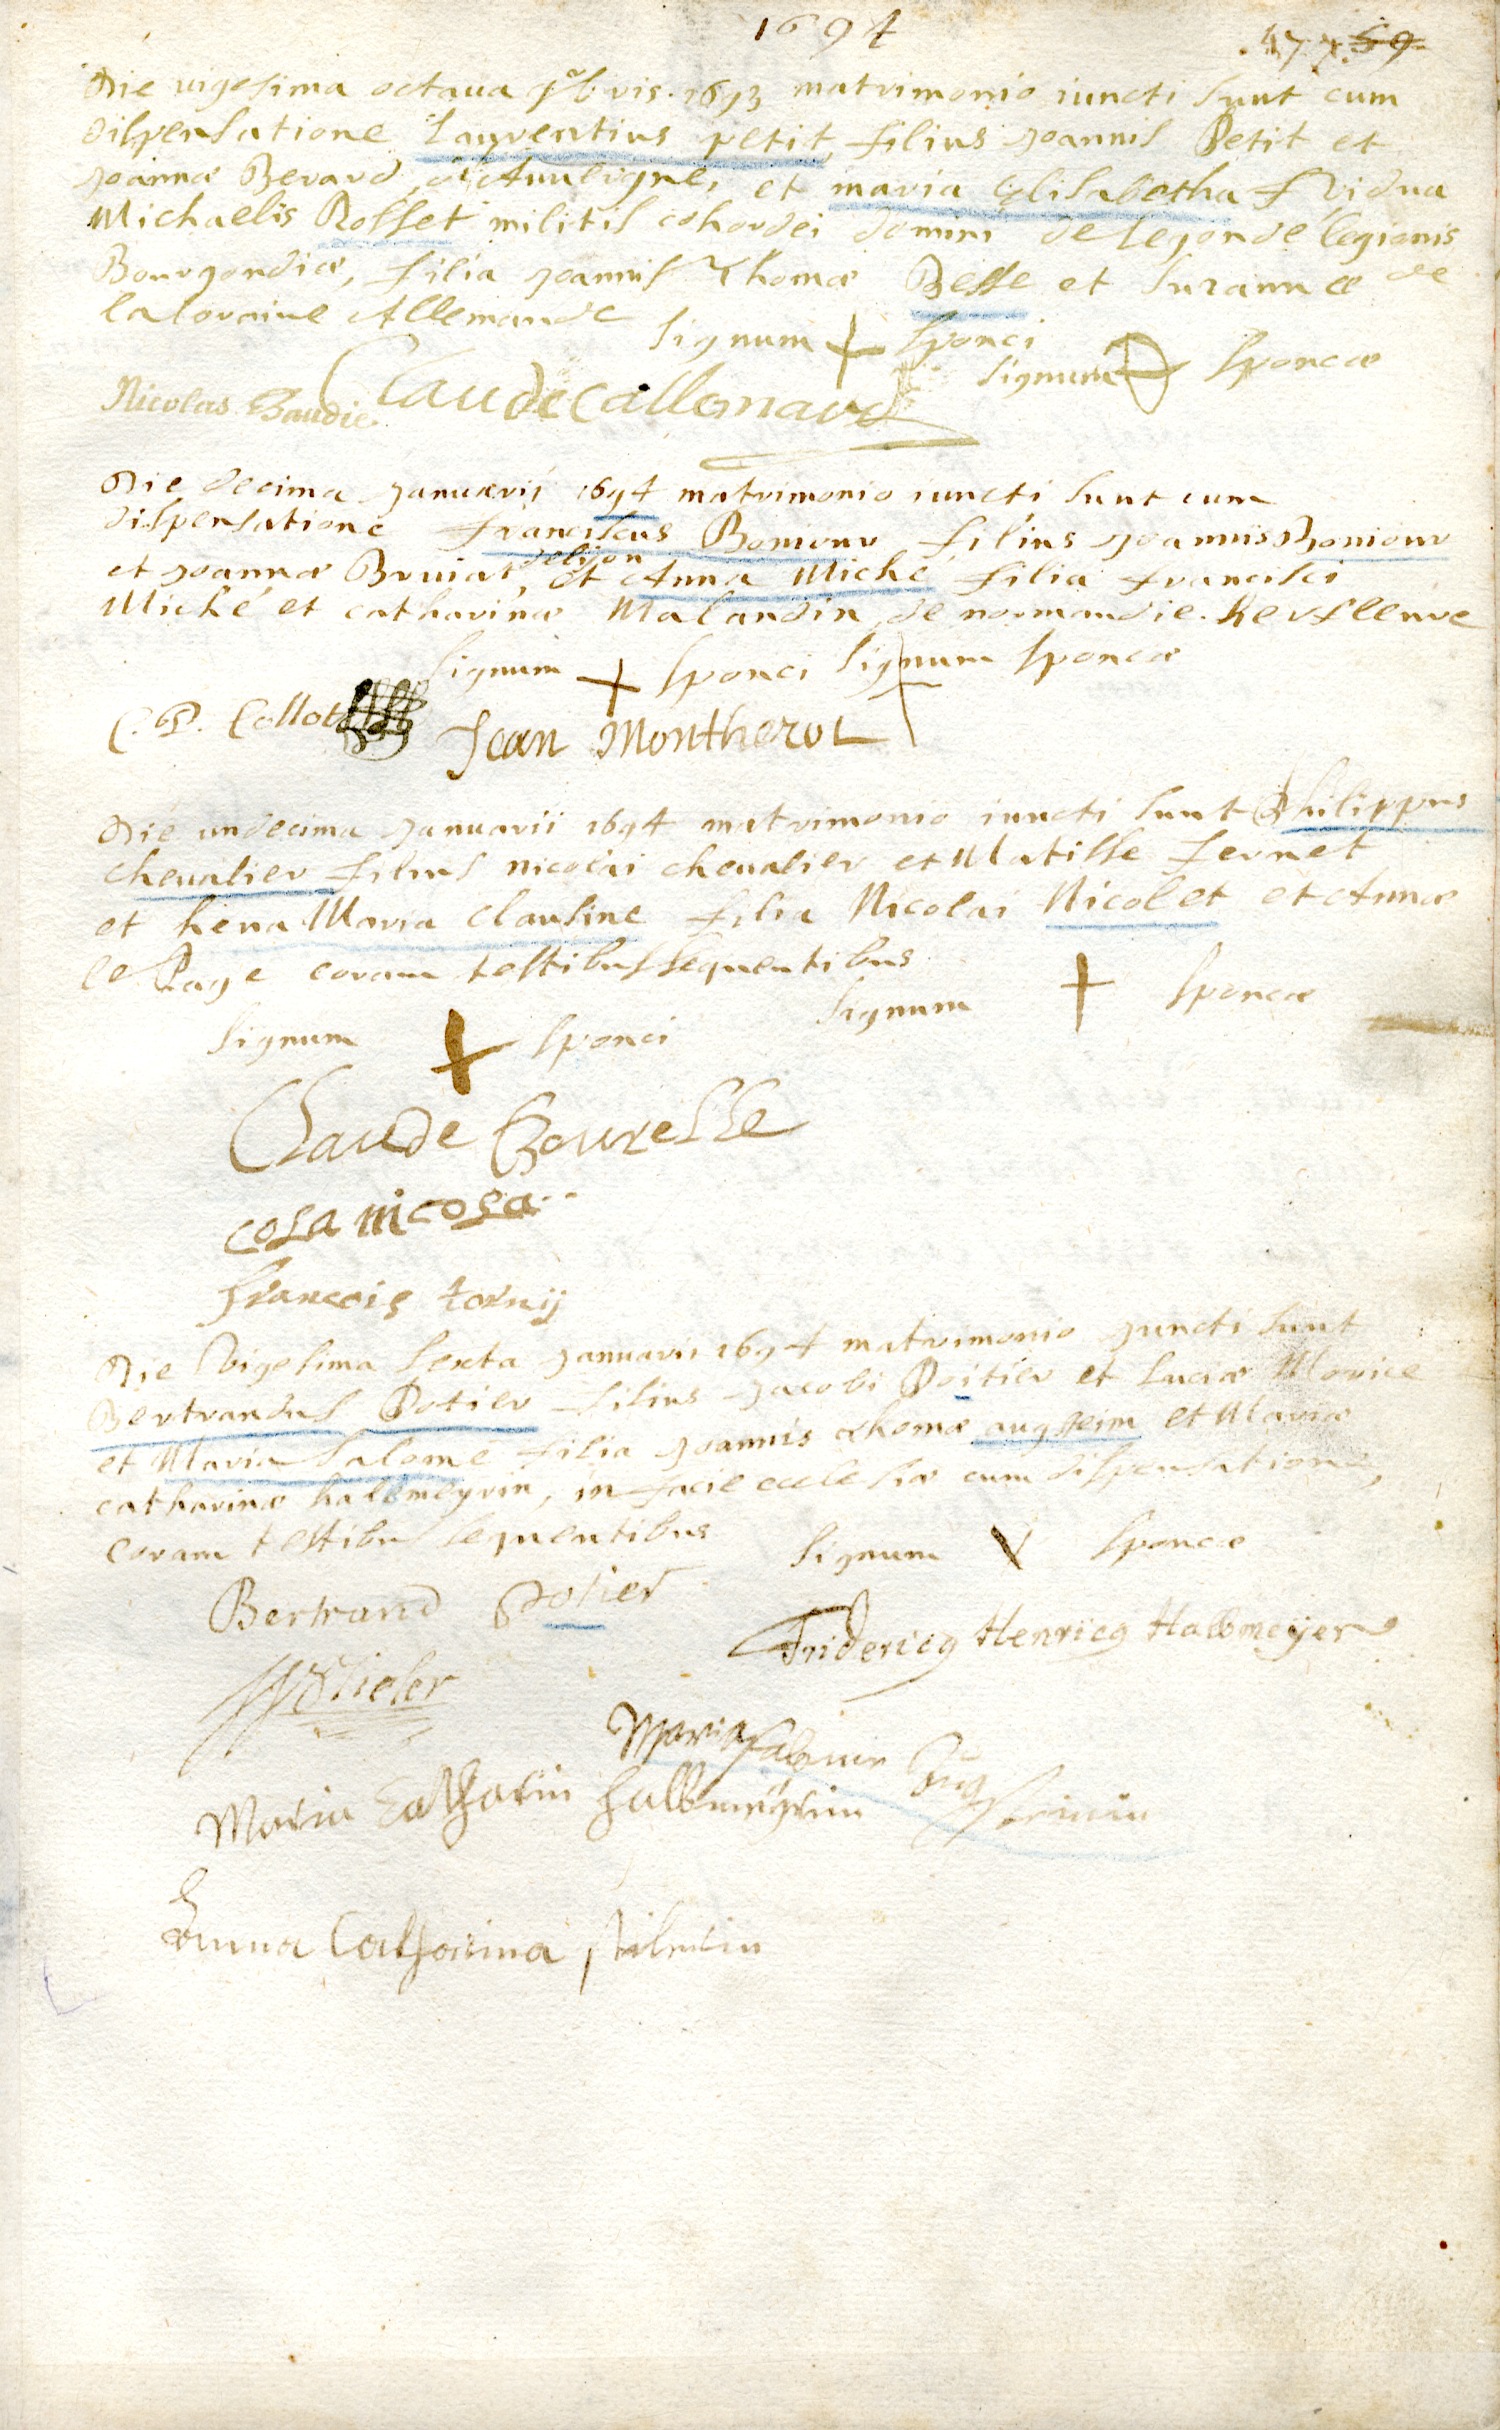 1694
477 59
Die vigesima octava 9bris 1693 matrimonio iuncti sunt cum
dispensatione Laurentius petit, filius joannis Petit et
joannæ Berard, d'Auuergne, et maria Elisabetha Vidua
Michaelis Rosset militis cohordei domini de Legonde legionis
Bourgondiæ, filia joannis Thomæ Besse et Susannæ de
la loraine Allemande
signum + sponci
signum sponcæ
Nicolas Baudie Claude Callemard
Die decima januarii 1694 matrimonio iuncti sunt cum
dispensatione franciscus Boniour filius joannis Boniour
et joannæ Bruiar, de lyon et Anna Miché filia francisci
Miché et catharinæ Malandin de normandie.
signum + sponci signum sponcæ
C. P. Collot
Jean Montherot
Die undecima januarii 1694 matrimonio iuncti sunt Philippus
cheualier filius nicolai cheualier et Matisse fernet
et hena Maria clausine filia Nicolai Nicolet et Annæ
le Page coram testibus sequentibus
signum + sponci
signum + sponcæ
Claude Bourelle
cola nicola
françois torny
Die Vigesima sexta januarii 1694 matrimonio juncti sunt
Bertrandus Potier filius jacobi Poitier et Luciæ Morice
et Maria Salome filia joannis thomæ augstein et Mariæ
catharinæ halbmeyrin, in facie ecclesiæ cum dispensatione,
coram testibus sequentibus
signum sponcæ
Bertrand Potier
Fridericq Henricq Halbmeyer
Maria
Maria Catharin halbmeyrin
Anna Catharina